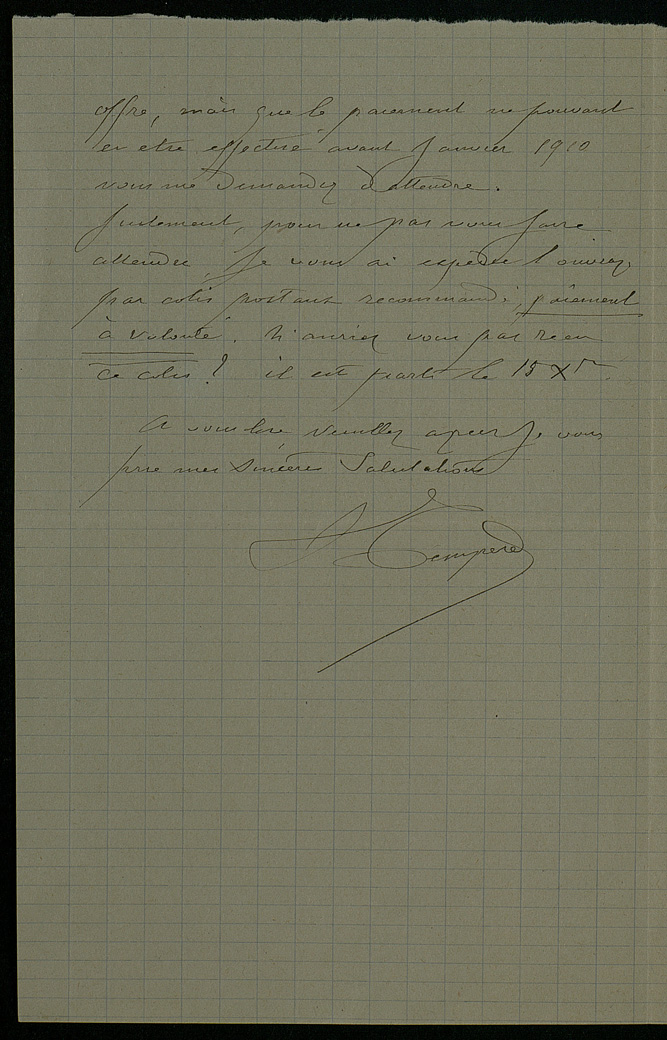 offre, mais que le paiement ne pouvant
en etre effectué avant Janvier 1910
vous me demandez d'attendre.
Justement, pour ne pas vous faire
attendre, Je vous ai expédié l'ouvrage
par colis postaux recommandé, paiement
à volonté. N'auriez vous pas recu
ce colis? il est parti le 15 Xbre.
A vous lire, veuillez agréer Je vous
prie mes Sincères Salutations
J. Tempère